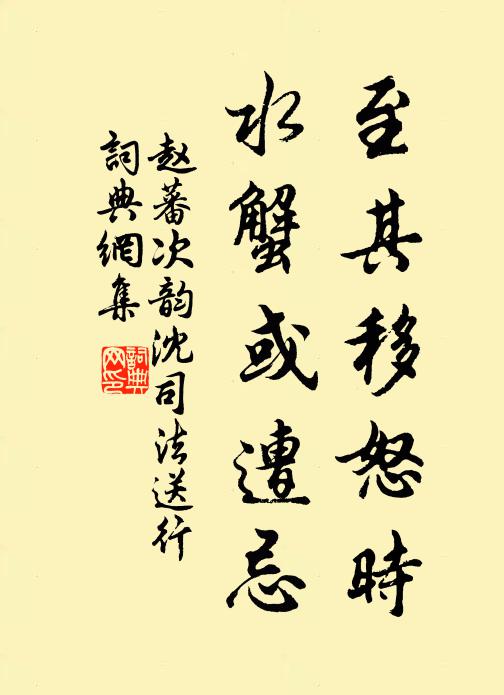 至其移怒時
水蟹或遭忌
赵蕃次韵沈司法送行
詞典網集
詞典網印